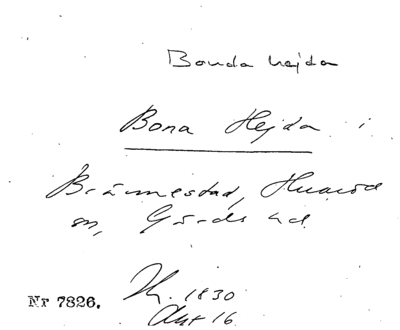 Bonda hejda
Bona Hejda i
Brännestad, Huaröd
sn, Gärds hd.
Nr 7826. Th. 1830
Akt 16